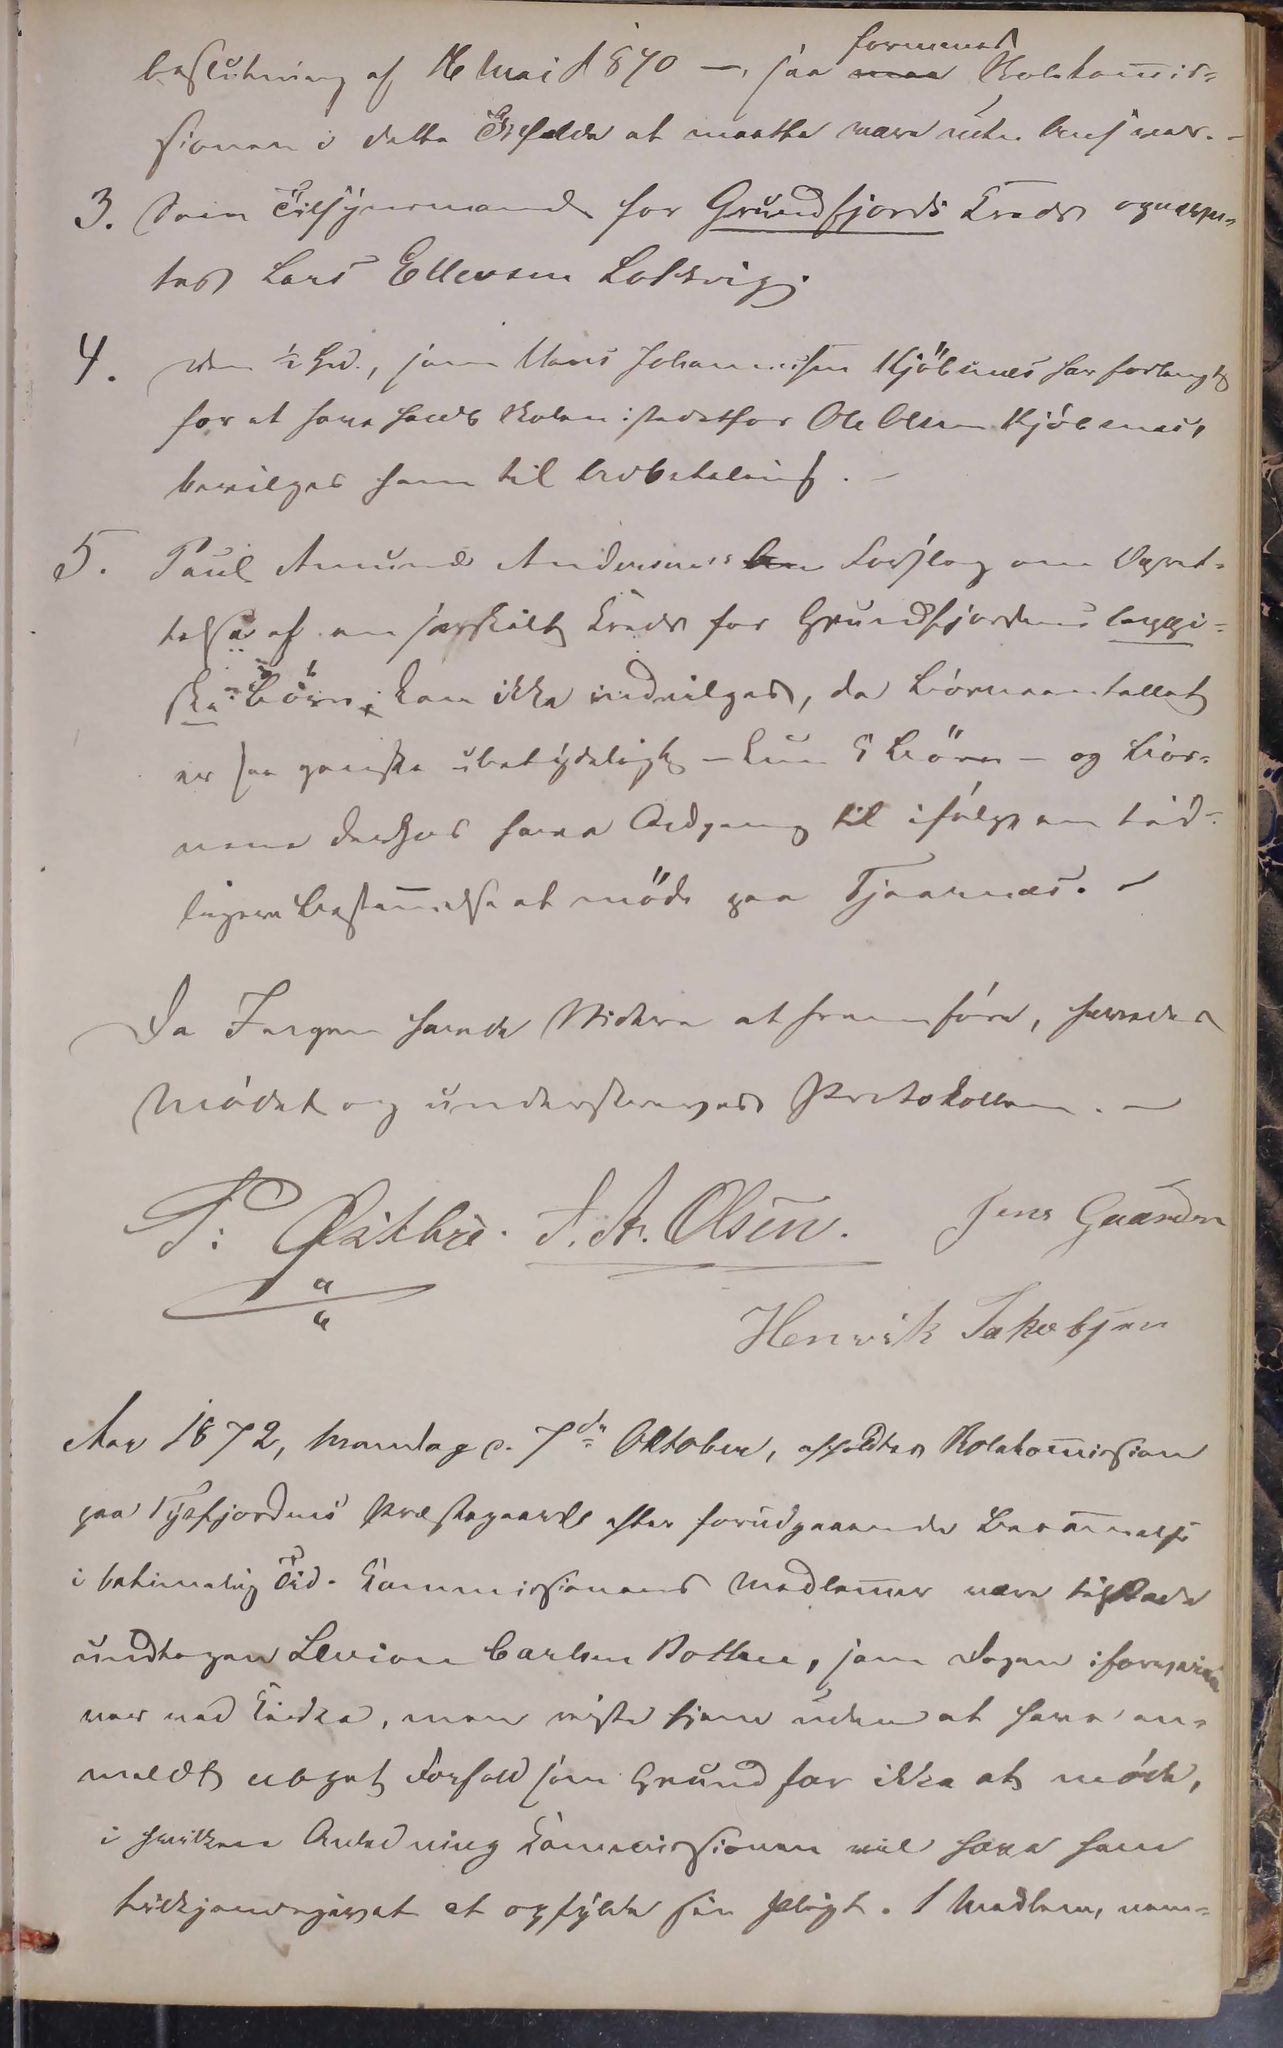 beslutning af 16 Mai 1870 —, saa formenes Skolekom̅is-
sionen i dette Tilfelde at maatte være uden Ansvar. –
3. Som Tilsynsmand for Grundfjords Kreds opnævn-
tes Lars Ellevsen Lossvig.
4. Den ½ Spd., som Hans Johannessen Kjöbsnæs har forlangt
for at have havt Skolen istedetfor Ole Olsen Kjöbsnæs,
bevilges ham til Udbetaling. –
5. Paul Amund Andersens Forslag om Opret-
telse af en særskilt Kreds for Grundfjordens lappi-
ske Börn, kan ikke indvilges, da Börneantallet
er saa ganske ubetydeligt – kun 5 Börn – og Bör-
nene derhos have Adgang til ifölge en tid-
ligere Bestem̅else at möde paa Tjaarnæs. –
Da Ingen havde Videre at fremföre, hævedes
Mödet og underskreves Protokollen. –
P. Östbye. J. A. Olsen. Jens Gaarder
Henrik Jakobsen
Aar 1872, Mandag d. 7de Oktober, afholdtes Skolekom̅ission
paa Tysfjordens Præstegaard efter forudgaaende Beram̅else
i betimelig Tid. Kommissionens Medlem̅er vare tilstede
undtagen Levion Carlsen Botten, som Dagen iforveien
var ved Kirke, men reiste hjem uden at have an-
meldt noget Forfald som Grund for ikke at möde,
i hvilken Anledning Kommissionen vil have ham
tilkjendegivet at opfylde sin Pligt. 1 Medlem, nem-